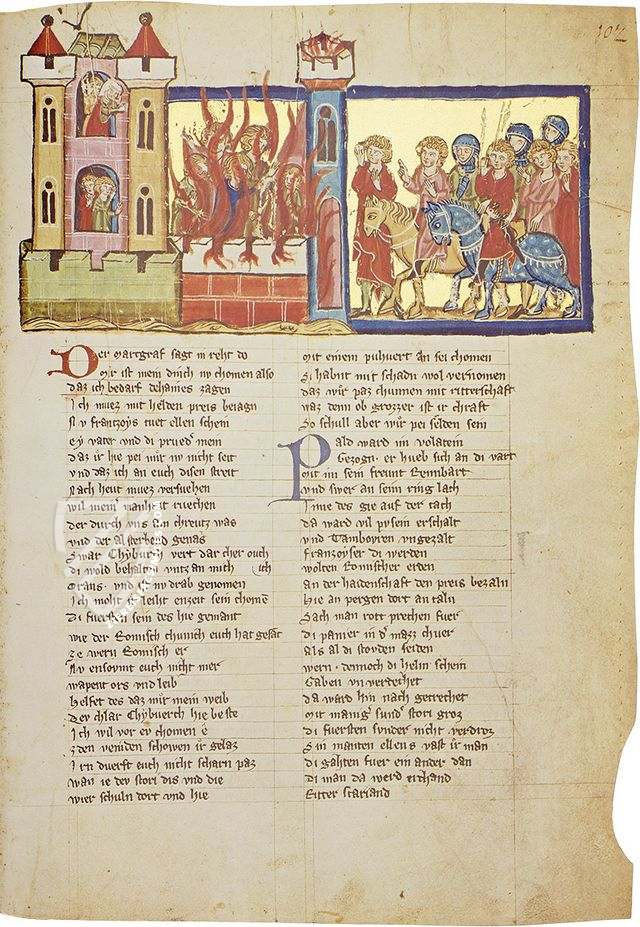 102
Der Martgraf sagt in reht do
Mir ist mein dinch nv chomen also
daz ich bedarf dehaines zagen
Ich muez mit helden preis beiagn
Nv frantzoys tuet ellen schein
ey vater vnd di prued mein
daz ir hie pei mir nv nicht seit
vnd daz ich an euch disen streit
Nach hevt muez versuehen
wil mein manhait ruechen
der durch vns am chreutz was
vnd der alsterbend genas
Swar Chyburch vert dar cher ouch ich
di wold behalten vntz an mich
Trans vnd ist nv drab genomen
Ich moht leiht enzeit sein chomen
Di fuersten sein des hie gemant
wie der Romisch chunich euch hat gesant
ze wern Romisch er
Nv ensovmt euch nicht mer
wapent ors vnd leib
helfet des daz mir mein weib
Dev chlar Chyburch hie beste
Ich wil vor ev chomen e
zden veniden schowen ir gelaz
Irn durft euch nicht scharn paz
wan ie dev stori dis vnd die
wier schuln dort vnd hie
mit einem puhuert an sei chomen
Si habnt mit schadn wol vernomen
daz wir paz chumen mit ritterschaft
waz denn ob grozzer ist ir chraft
So schull aber wir pei selden sein
Pald ward im volatein
Gezogn er hueb sich an di vart
mit im sein freunt Rennbart
vnd swer an sein ring lach
Inne des gie auf der tach
da ward vil pusein erschalt
vnd Tamboyren vngezalt
Franzoyser di werden
wolten Romischer erden
an der haidenschaft den preis bezaln
Hie an pergen dort an taln
Sach man rott prechen fuer
di panier in der mazz chuer
als al di stovden seiden
wern dennoch di helm schein
Gaben vnverdechet
da ward hin nach getrechet
mit manig sunder stori groz
di fuersten sunder nicht verdroz
Sin manten ellens vast ir man
di gahten fuer ein ander dan
di man da werd erchand
Ritter Sariand